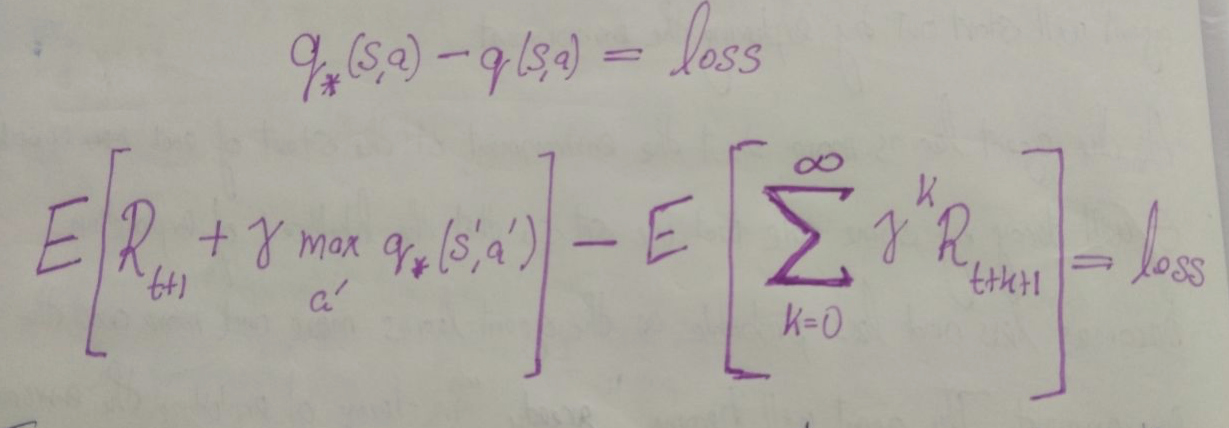 q_*(s,a) - q(s,a) = loss
E[R_{t+1} + γ max_{a'} q_*(s',a')] - E[∑_{k=0}^{∞} γ^k R_{t+k+1}] = loss